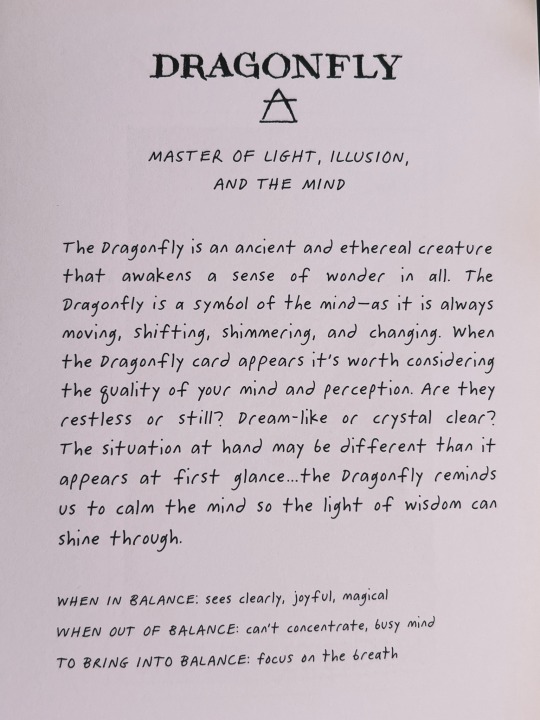 DRAGONFLY
MASTER OF LIGHT, ILLUSION,
AND THE MIND
The Dragonfly is an ancient and ethereal creature
that awakens a sense of wonder in all. The
Dragonfly is a symbol of the mind—as it is always
moving, shifting, shimmering, and changing. When
the Dragonfly card appears it's worth considering
the quality of your mind and perception. Are they
restless or still? Dream-like or crystal clear?
The situation at hand may be different than it
appears at first glance...the Dragonfly reminds
us to calm the mind so the light of wisdom can
shine through.
WHEN IN BALANCE: sees clearly, joyful, magical
WHEN OUT OF BALANCE: can't concentrate, busy mind
TO BRING INTO BALANCE: focus on the breath